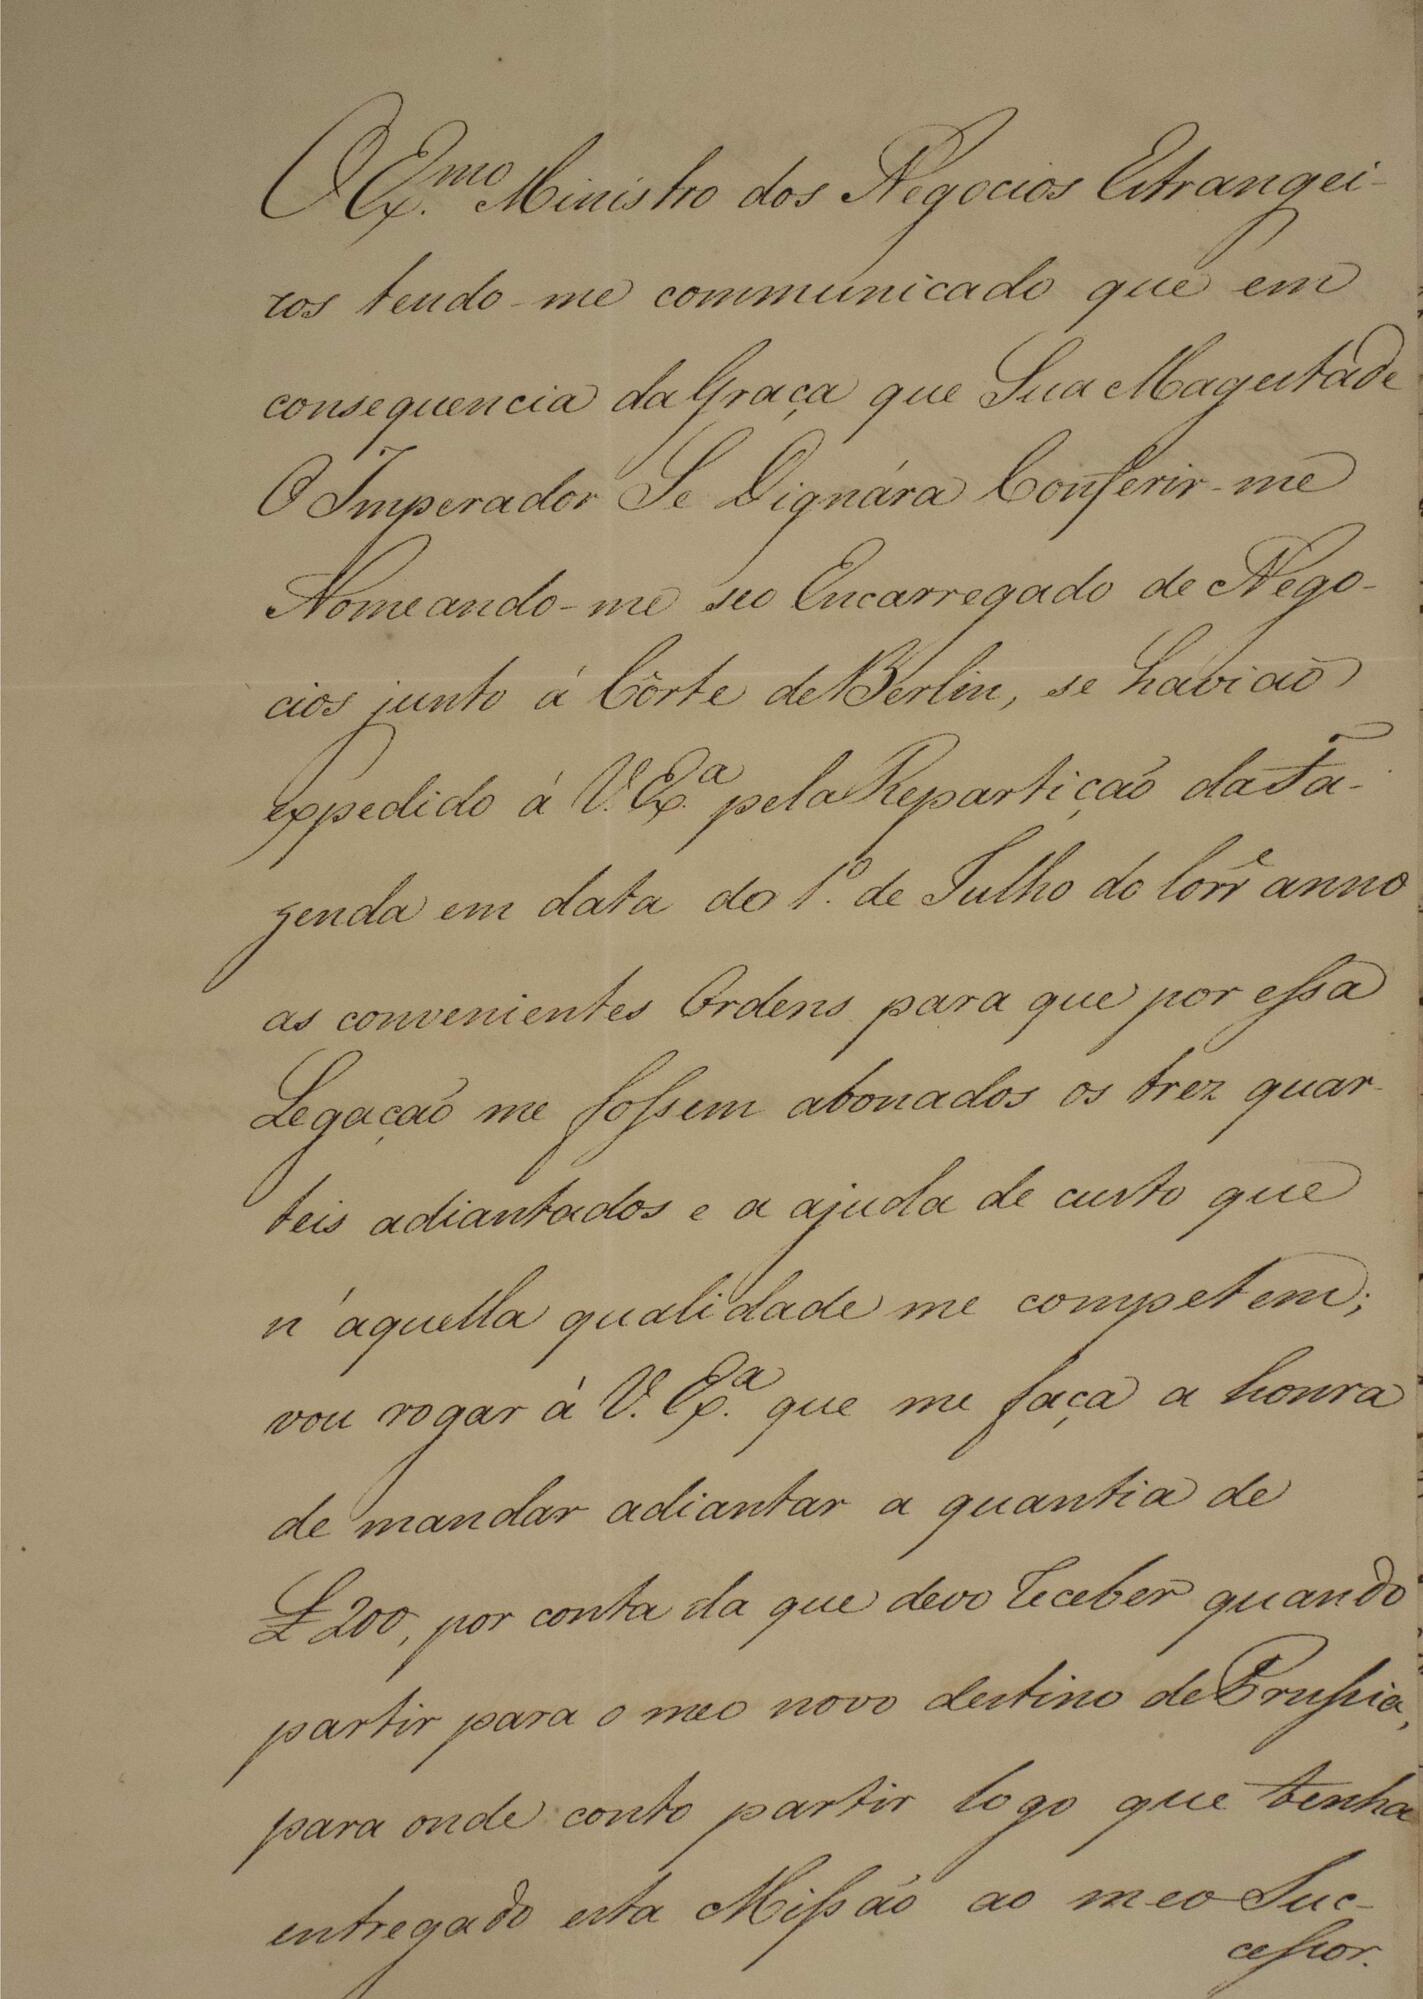 O Ex.mo Ministro dos Negocios Estrangei-
ros tendo-me communicado que em
consequencia da Graça que Sua Magestade
O Imperador Se Dignára Conferir-me
Nomeando-me seo Encarregado de Nego-
cios junto á Côrte de Berlin, se havião
expedido á V. Ex.a pela Repartição da Fa-
zenda em data do 1.o de Julho do Corr.e anno
as convenientes Ordens para que por essa
Legação me fossem abonados os trez quar-
teis adiantados e a ajuda de custo que
n'aquella qualidade me competem;
vou rogar à V. Ex.a que me faça a honra
de mandar adiantar a quantia de
£200, por conta da que devo receber quando
partir para o meo novo destino de Prussia,
para onde conto partir logo que tenha
entregado esta Missão ao meo Suc-
cessor.